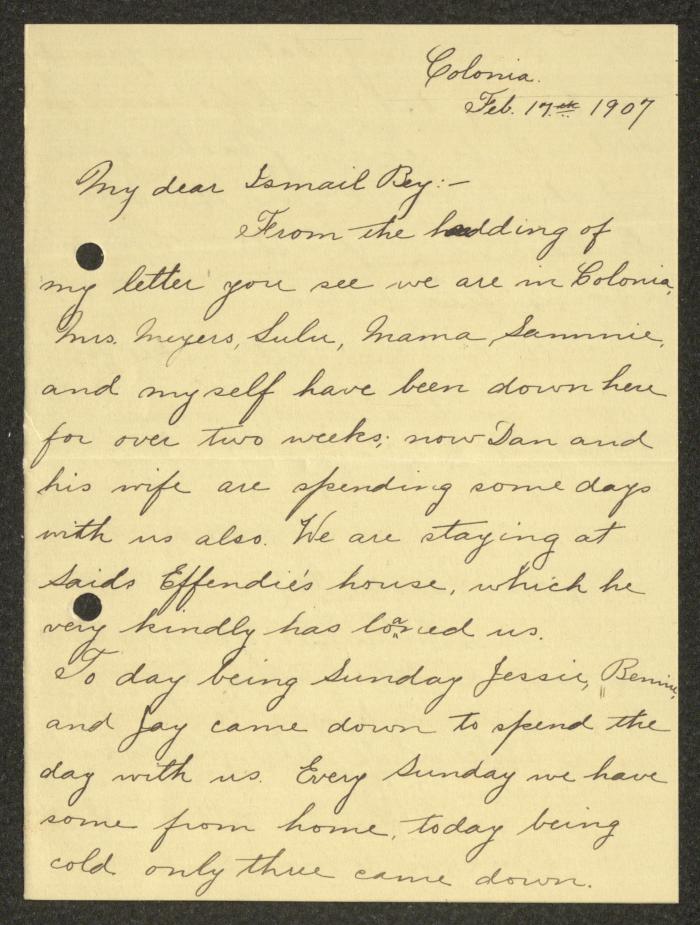 Colonia.
Feb. 17th 1907
My dear Ismail Bey:-
From the hedding of
my letter you see we are in Colonia,
Mrs. Meyers, Lulu, Mama, Sammie,
and myself have been down here
for over two weeks; now Dan and
his wife are spending some days
with us also. We are staying at
Saids Effendie's house, which he
very kindly has loaned us.
To day being Sunday Jessie, Bennie,
and Jay came down to spend the
day with us. Every Sunday we have
some from home, today being
cold only three came down.